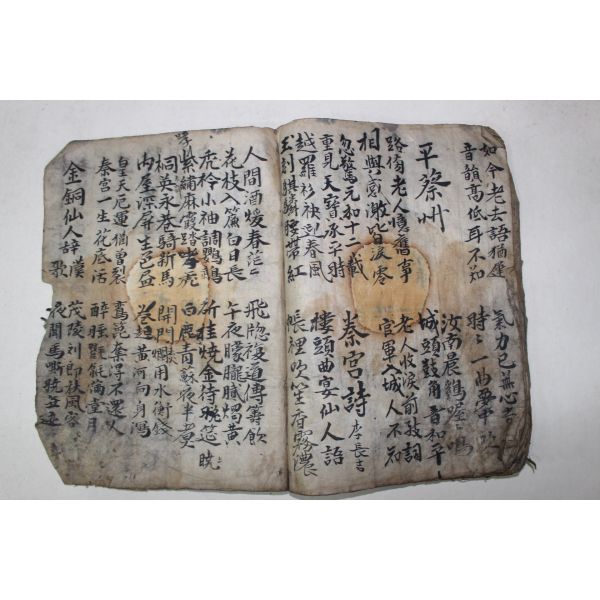 如今老去語猶遲
音韻高低耳不知
氣力已無心尚
時々一曲夢中吹
平蔡州
汝南晨鷄喔々鳴
城頭鼓角音和平
路傍老人憶舊事
相與感激皆淚零
老人收淚前致詞
官軍入城人不知
忽驚元和十二載
重見天寶承平時
秦宮詩 李長吉
越羅衫袂迎春風
玉刻麒麟腰帶紅
樓頭曲宴仙人語
帳裡吹笙香霧濃
人間酒煖春茫々
花枝入簾白日長
飛牕複道傳籌飮
午夜朦朧膩燭黃
禿衿小袖調鸚鵡
紫繡麻霞踏哮虎
斫桂燒金待曉筵
白鹿靑蘇夜半煮
桐英永巷騎新馬
內屋深屛生色畫
開門爛用水衡錢
卷起黃河向身瀉
皇天厄運猶曾裂
秦宮一生花底活
鸞篦奪得不還人
醉睡氍毹滿堂月
金銅仙人辭漢歌
茂陵刘郞秋風客
夜聞馬嘶曉無迹